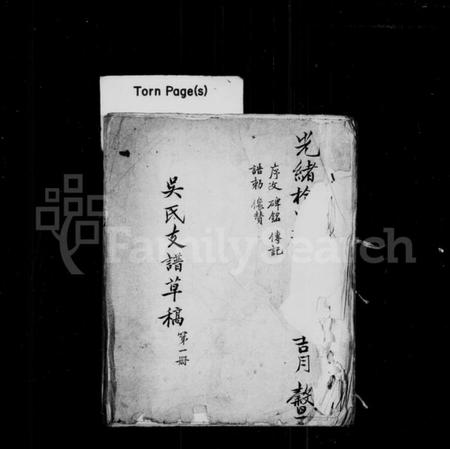 Torn Page(s)
光緒
吉月
序次 碑銘 傳記
誥勅 像贊
吳氏支譜草稿 第一冊
FamilySearch